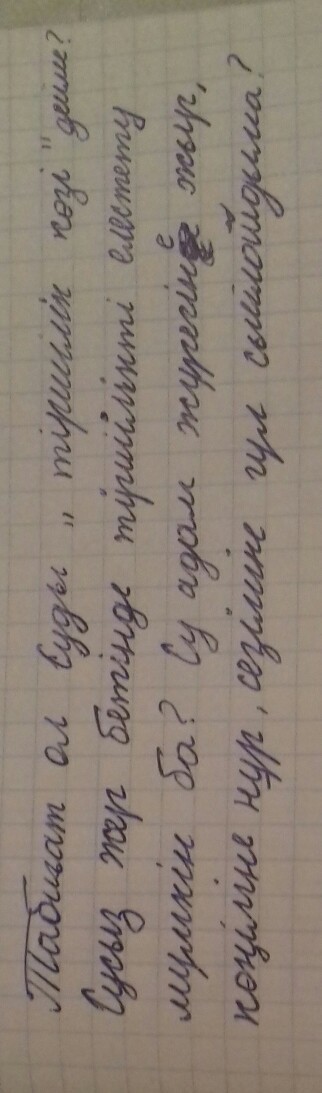 Табиғат ол Суды „ тіршілік көзі " дейме?
Сусыз жер бетінде тіршілікті елестету
мүмкін ба? Су адам жүрегіне жыр,
көңіліне нұр, сезіміне гүл сыйлайдыма?